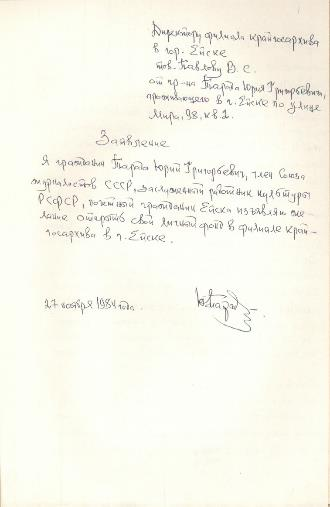 Директору филиала крайгосархива
в гор. Ейске
тов. Павлову В. С.
от гр-на Тарада Юрия Григорьевича,
проживающего в г. Ейске по улице
Мира, 98, кв 1.
Заявление
Я гражданин Тарада Юрий Григорьевич, член Союза
журналистов СССР, заслуженный работник культуры
РСФСР, почётный гражданин Ейска изъявляю же-
лание открыть свой личный фонд в филиале край-
госархива в г. Ейске.
27 ноября 1984 года.